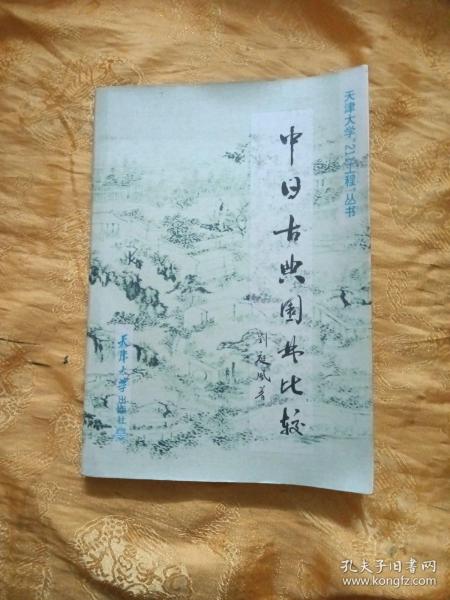 天津大学“211工程”丛书
中日古典园林比较
刘庭风著
天津大学出版社
孔夫子旧书网
www.kongfz.com